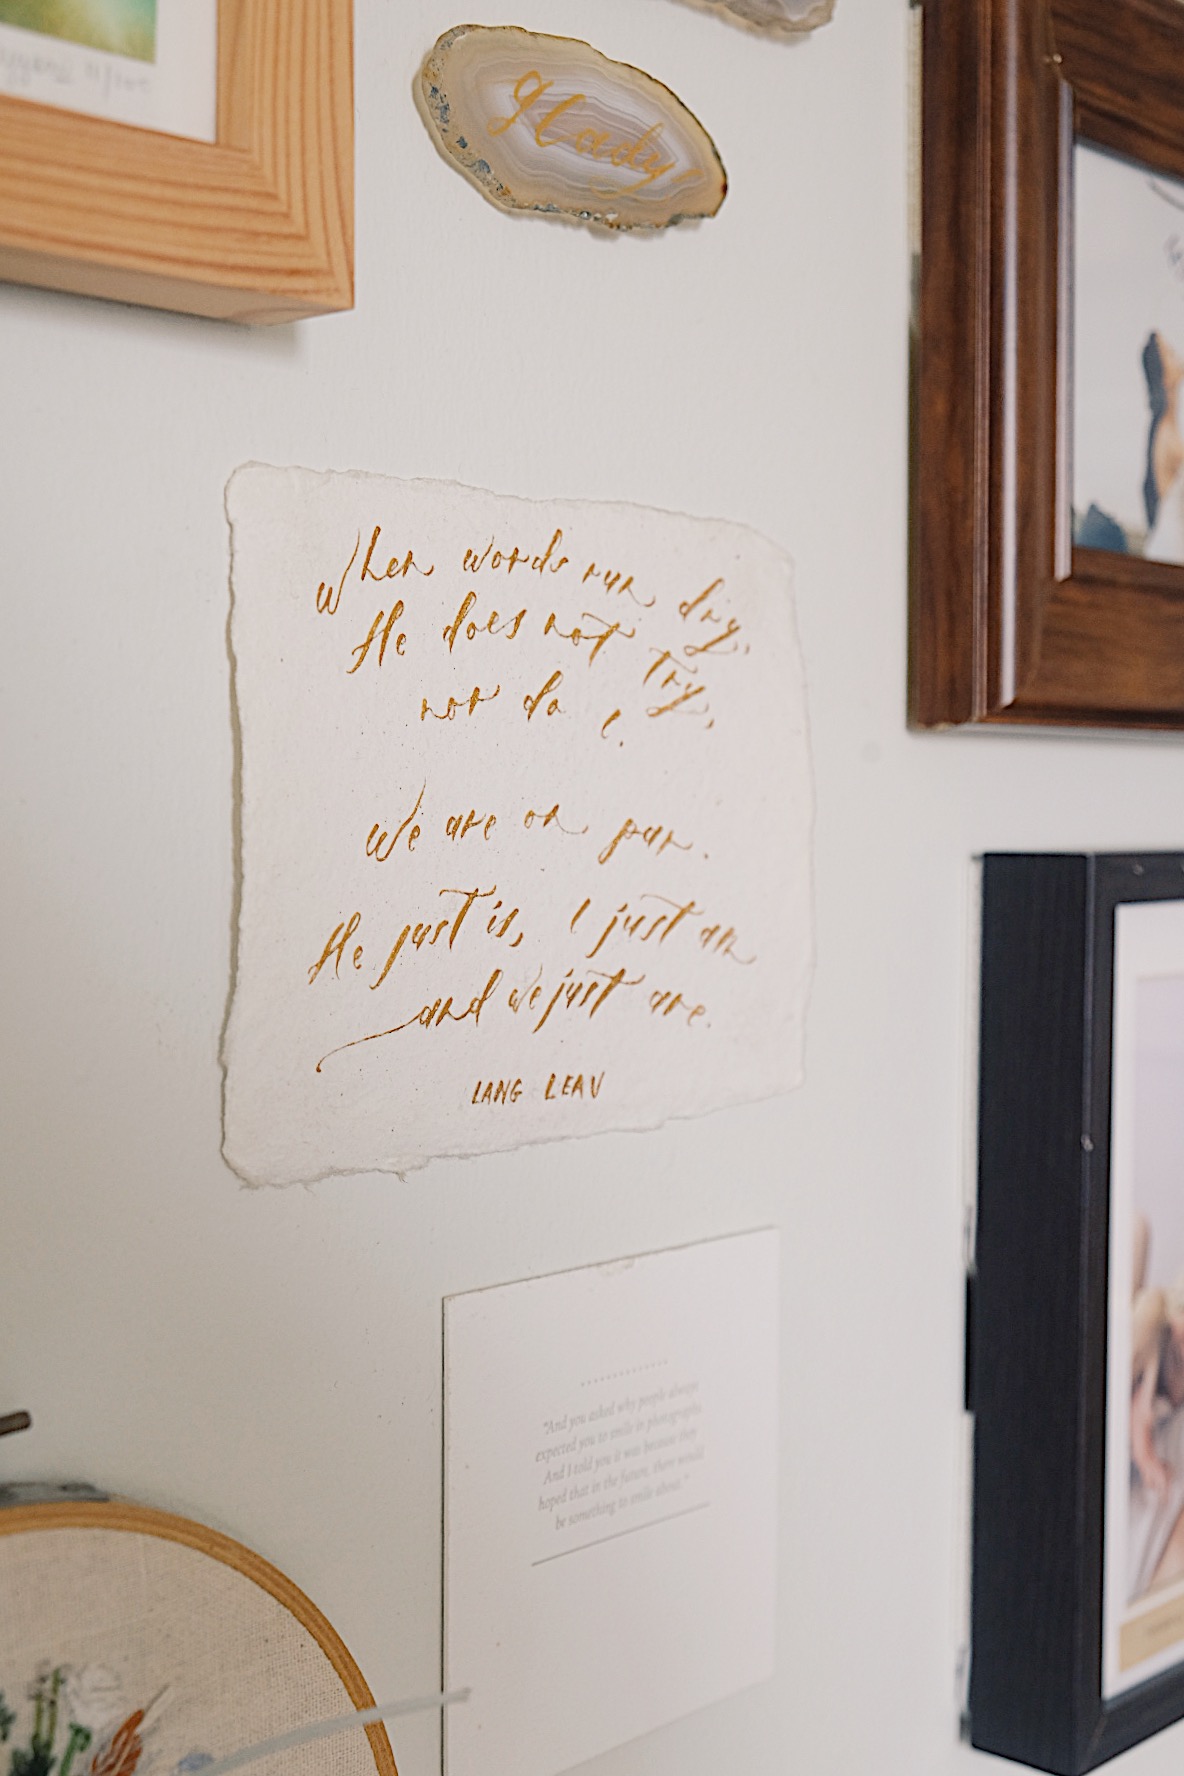 glady
When words run dry,
He does not try,
nor do I.
We are on par.
He just is, I just am
and we just are.
LANG LEAV
"And you asked why people always
expected you to smile in photographs.
And I told you it was because they
hoped that in the future, there would
be something to smile about."